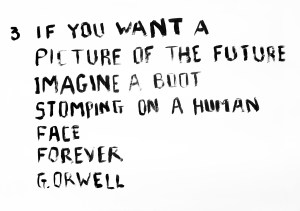 3 IF YOU WANT A
PICTURE OF THE FUTURE
IMAGINE A BOOT
STOMPING ON A HUMAN
FACE
FOREVER
G. ORWELL